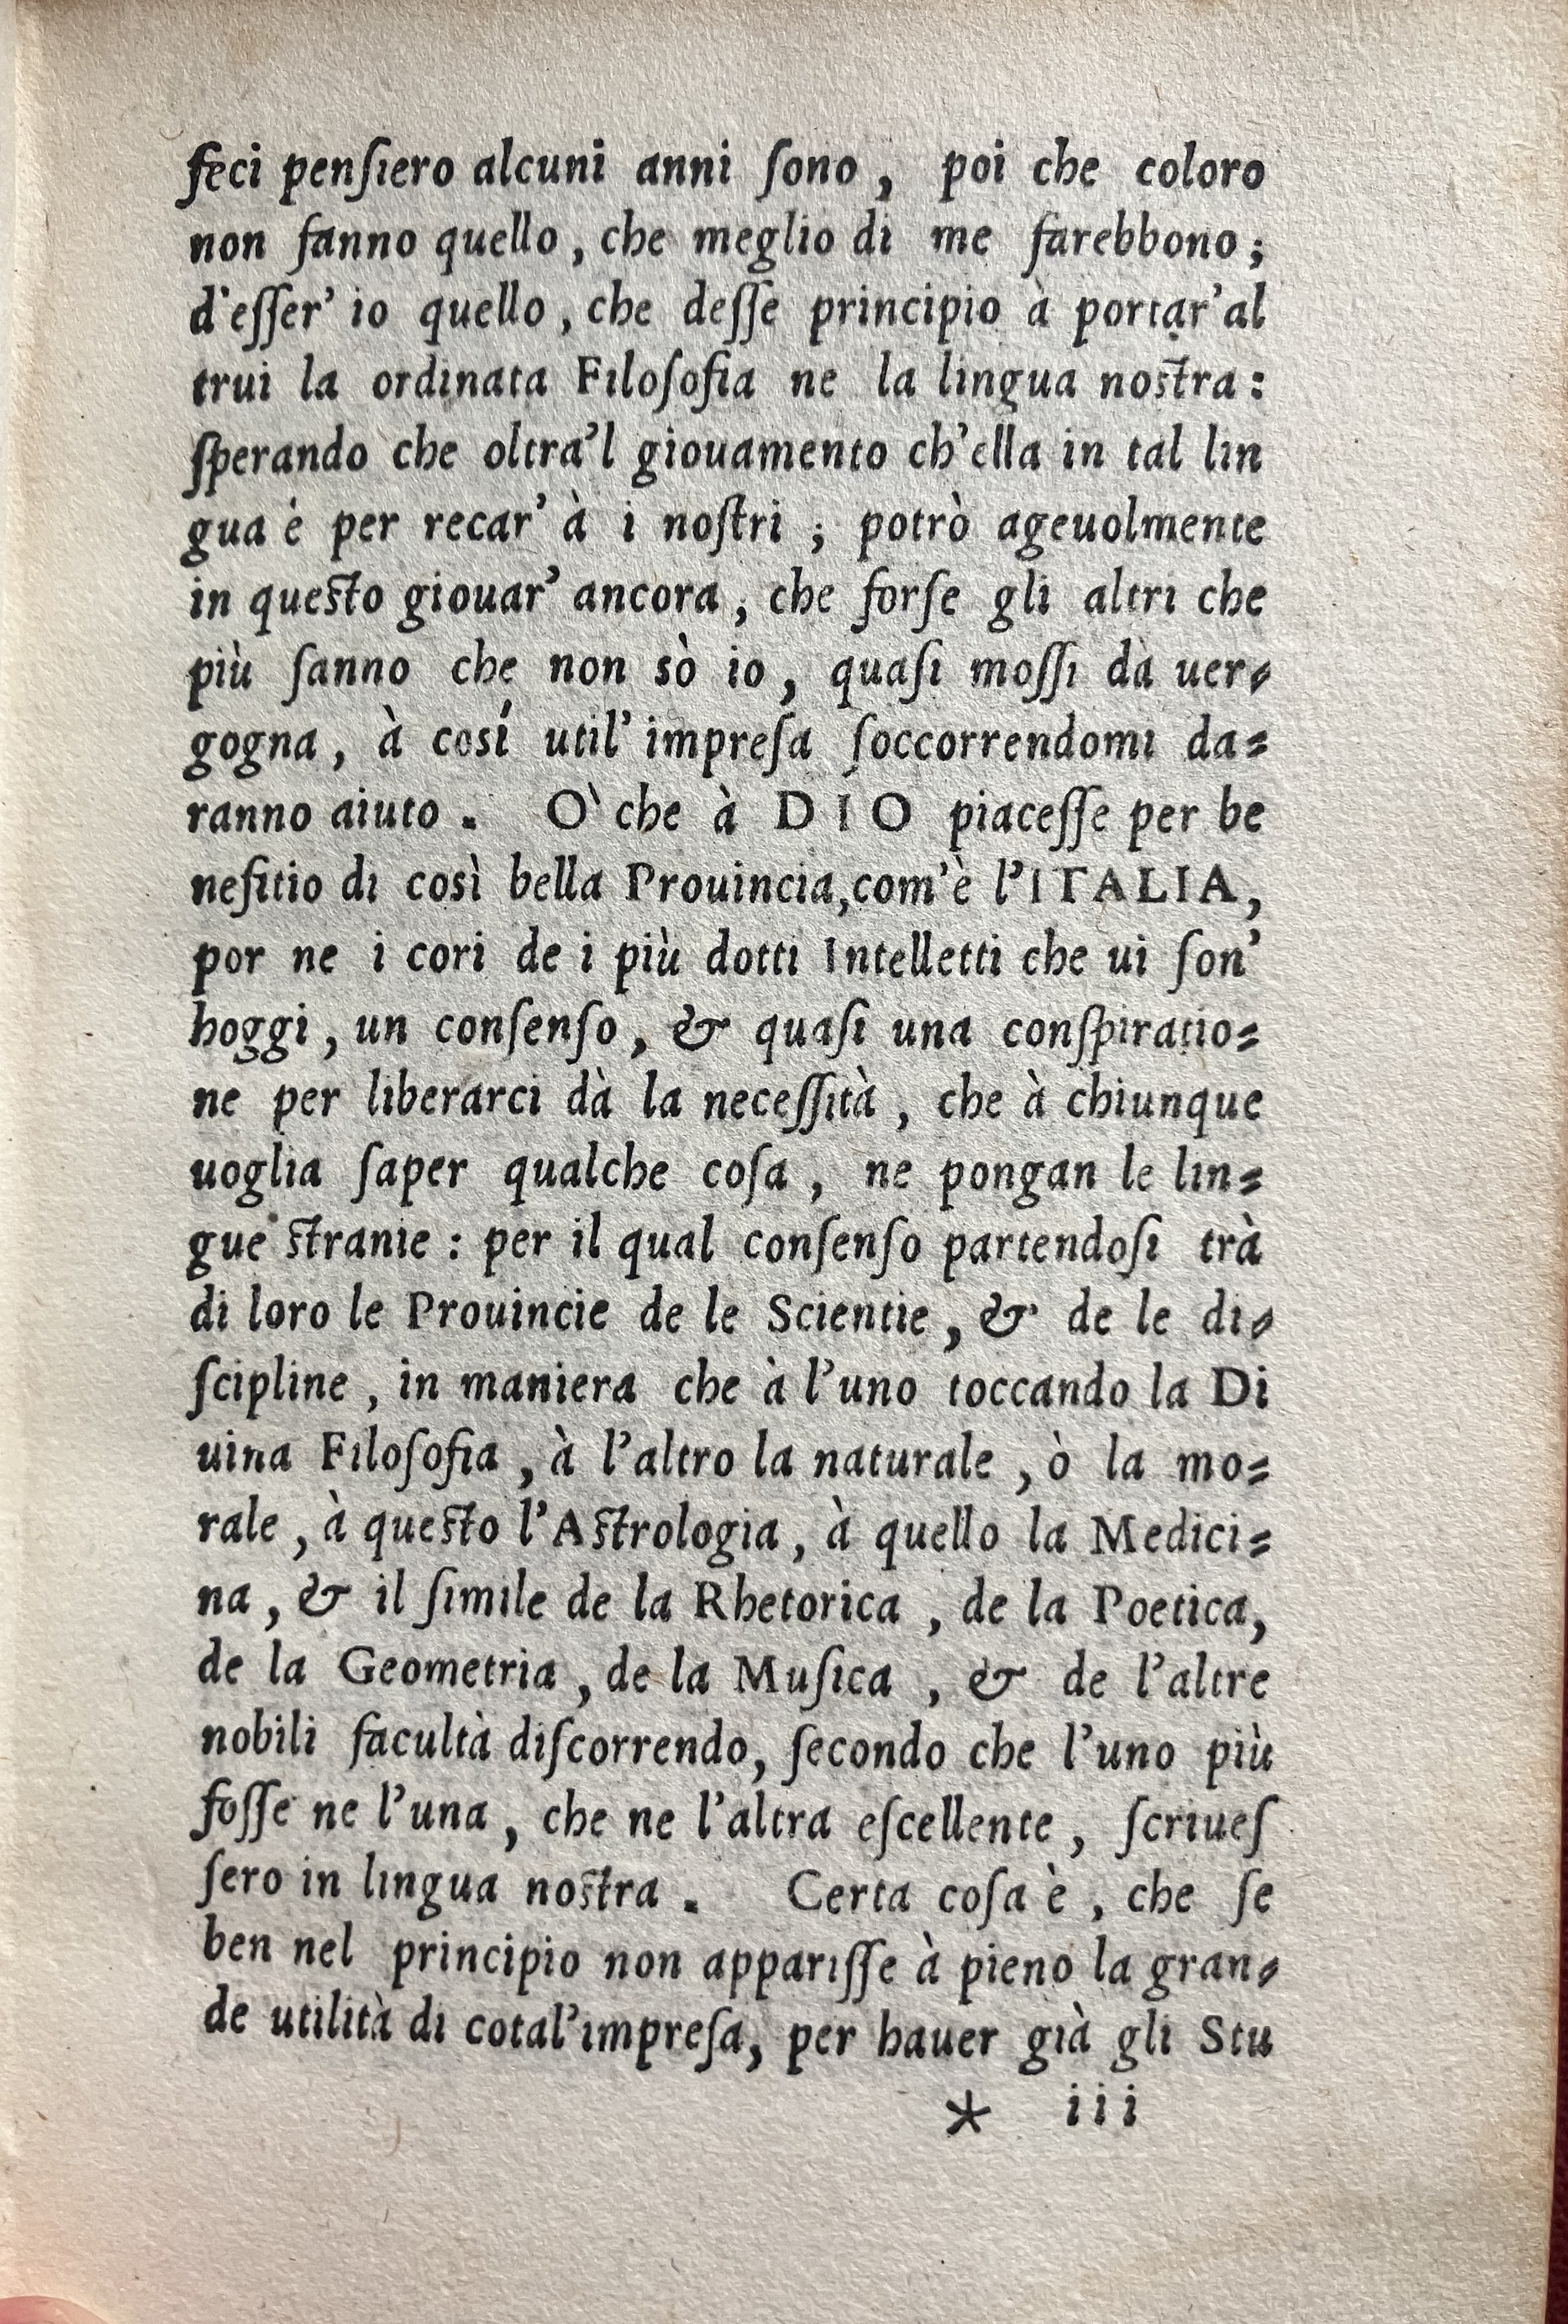 feci penſiero alcuni anni ſono, poi che coloro
non fanno quello, che meglio di me farebbono;
d'eſſer' io quello, che deſſe principio à portar'al
trui la ordinata Filoſofia ne la lingua noſtra:
ſperando che oltra'l giouamento ch'ella in tal lin
gua é per recar' à i noſtri; potrò ageuolmente
in queſto giouar' ancora, che forſe gli altri che
più ſanno che non sò io, quaſi moſſi da uer-
gogna, à cosí util' impreſa ſoccorrendomi da=
ranno aiuto. O' che à DIO piaceſſe per be
nefitio di così bella Prouincia, com'è l'ITALIA,
por ne i cori de i più dotti Intelletti che ui ſon'
hoggi, un conſenſo, & quaſi una conſpiratio=
ne per liberarci dà la neceſſità, che à chiunque
uoglia ſaper qualche coſa, ne pongan le lin=
gue ſtranie: per il qual conſenſo partendoſi trà
di loro le Prouincie de le Scientie, & de le di-
ſcipline, in maniera che à l'uno toccando la Di
uina Filoſofia, à l'altro la naturale, ò la mo=
rale, à queſto l'Aſtrologia, à quello la Medici=
na, & il ſimile de la Rhetorica, de la Poetica,
de la Geometria, de la Muſica, & de l'altre
nobili facultà diſcorrendo, ſecondo che l'uno più
foſſe ne l'una, che ne l'altra eſcellente, ſcriueſ
ſero in lingua noſtra. Certa coſa è, che ſe
ben nel principio non appariſſe à pieno la gran-
de utilità di cotal'impreſa, per hauer già gli Stu
* iii